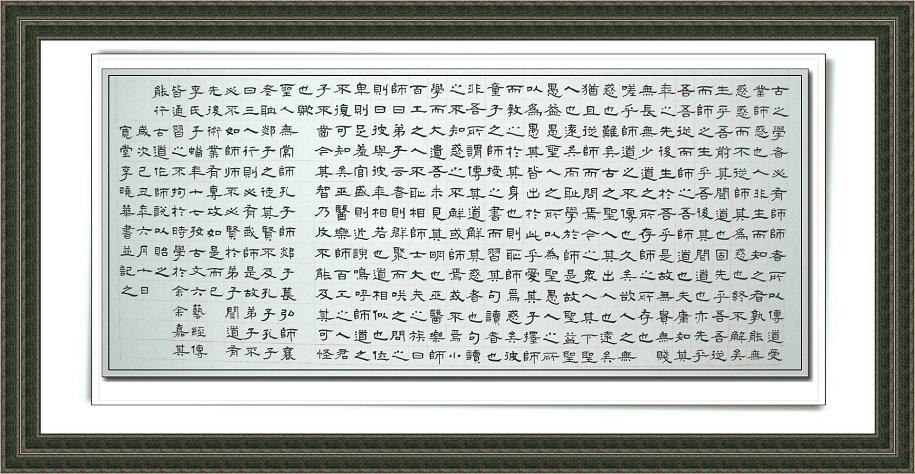 古之學者必有師師者所以傳道受
業解惑也人非生而知之者孰能無
惑惑而不從師其為惑也終不解矣
生乎吾前其聞道也固先乎吾吾從
而師之生乎吾後其聞道也亦先乎
吾吾從而師之吾師道也夫庸知其
年之先後生於吾乎是故無貴無賤
無長無少道之所存師之所存也
嗟乎師道之不傳也久矣欲人之無
惑也難矣古之聖人其出人也遠矣
猶且從師而問焉今之眾人其下聖
人也遠矣而恥學於師是故聖益聖
愚益愚聖人之所以為聖愚人之所
以為愚其皆出於此乎愛其子擇師
而教之於其身也則恥師焉惑矣彼
童子之師授之書而習其句讀者也
非吾所謂傳其道解其惑者也句讀
之不知惑之不解或師焉或不焉小
學而大遺吾未見其明也巫醫樂師
百工之人不恥相師士大夫之族曰
師曰弟子云者則群聚而笑之問之
則曰彼與彼年相若也道相似也位
卑則足羞官盛則近諛嗚呼師道之
不復可知矣巫醫樂師百工之人君
子不齒今其智乃反不能及其可怪
也歟
聖人無常師孔子師郯子萇弘師襄
老聃郯子之徒其賢不及孔子孔子
曰三人行則必有我師是故弟子不
必不如師師不必賢於弟子聞道有
先後術業有專攻如是而已
李氏子蟠年十七好古文六藝經傳
皆通習之不拘於時學於余余嘉其
能行古道作師說以貽之
歲次己丑年六月十日
寬堂李曉華書並記之